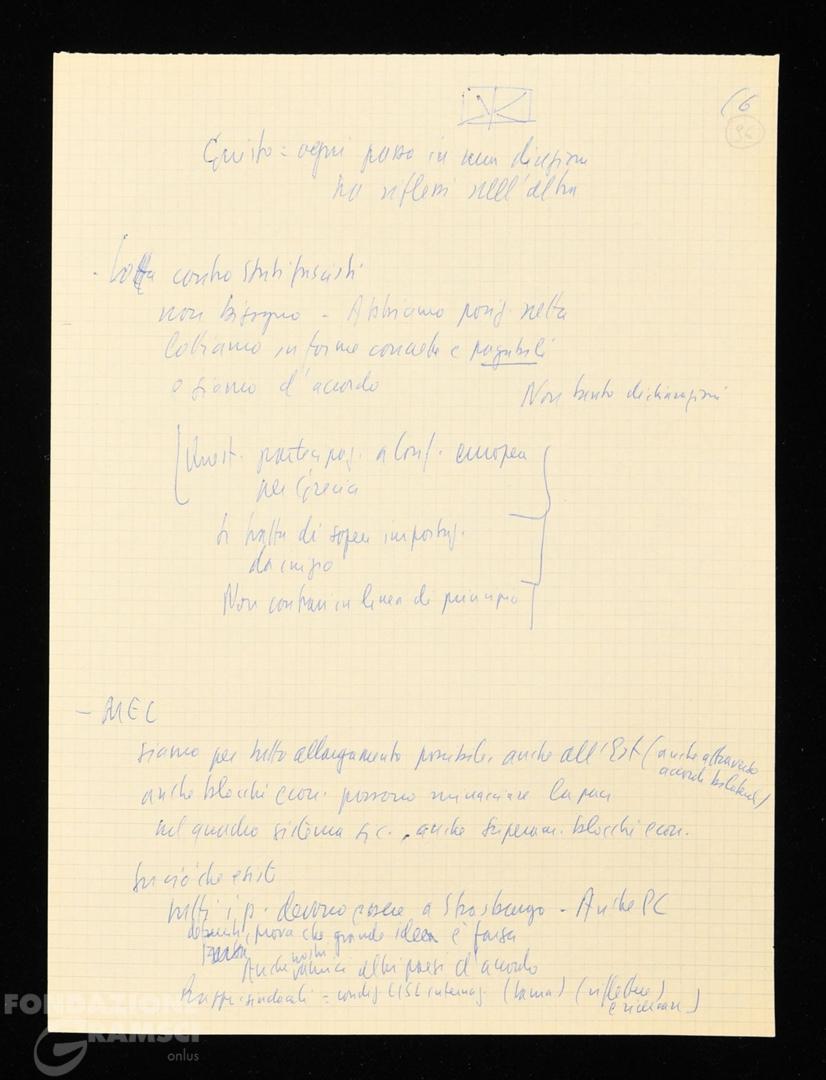 (6
96
Giusto = ogni passo in una direzione
ha riflessi nell'altra
- Lotta contro Stati fascisti
non bisogno - Abbiamo posiz. netta
Lottiamo in forme concrete e
e siamo d'accordo
Non tanto dichiarazioni
Quest. partecipaz. a Conf. europea
per Grecia
Si tratta di saper impostaz.
da inizio
Non contrari in linea di principio
- MEC
siamo per tutto allargamento possibile, anche all'Est (anche attraverso
accordi bilaterali)
anche blocchi econ. possono minacciare la pace
nel quadro sistema sic., anche superam. blocchi econ.
Su ciò che esiste
tutti i p. devono essere a Strasburgo - Anche PC
prova che grande idea è falsa
Anche nostri amici altri paesi d'accordo
Rapp. sindacali = CISL internaz. (Lama) (riflettere)
FONDAZIONE
GRAMSCI
onlus